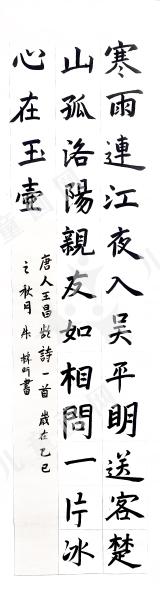 寒雨連江夜入吴平明送客楚
山孤洛陽親友如相問一片冰
心在玉壶
唐人王昌龄詩一首 歲在乙巳
之秋月 林昕書